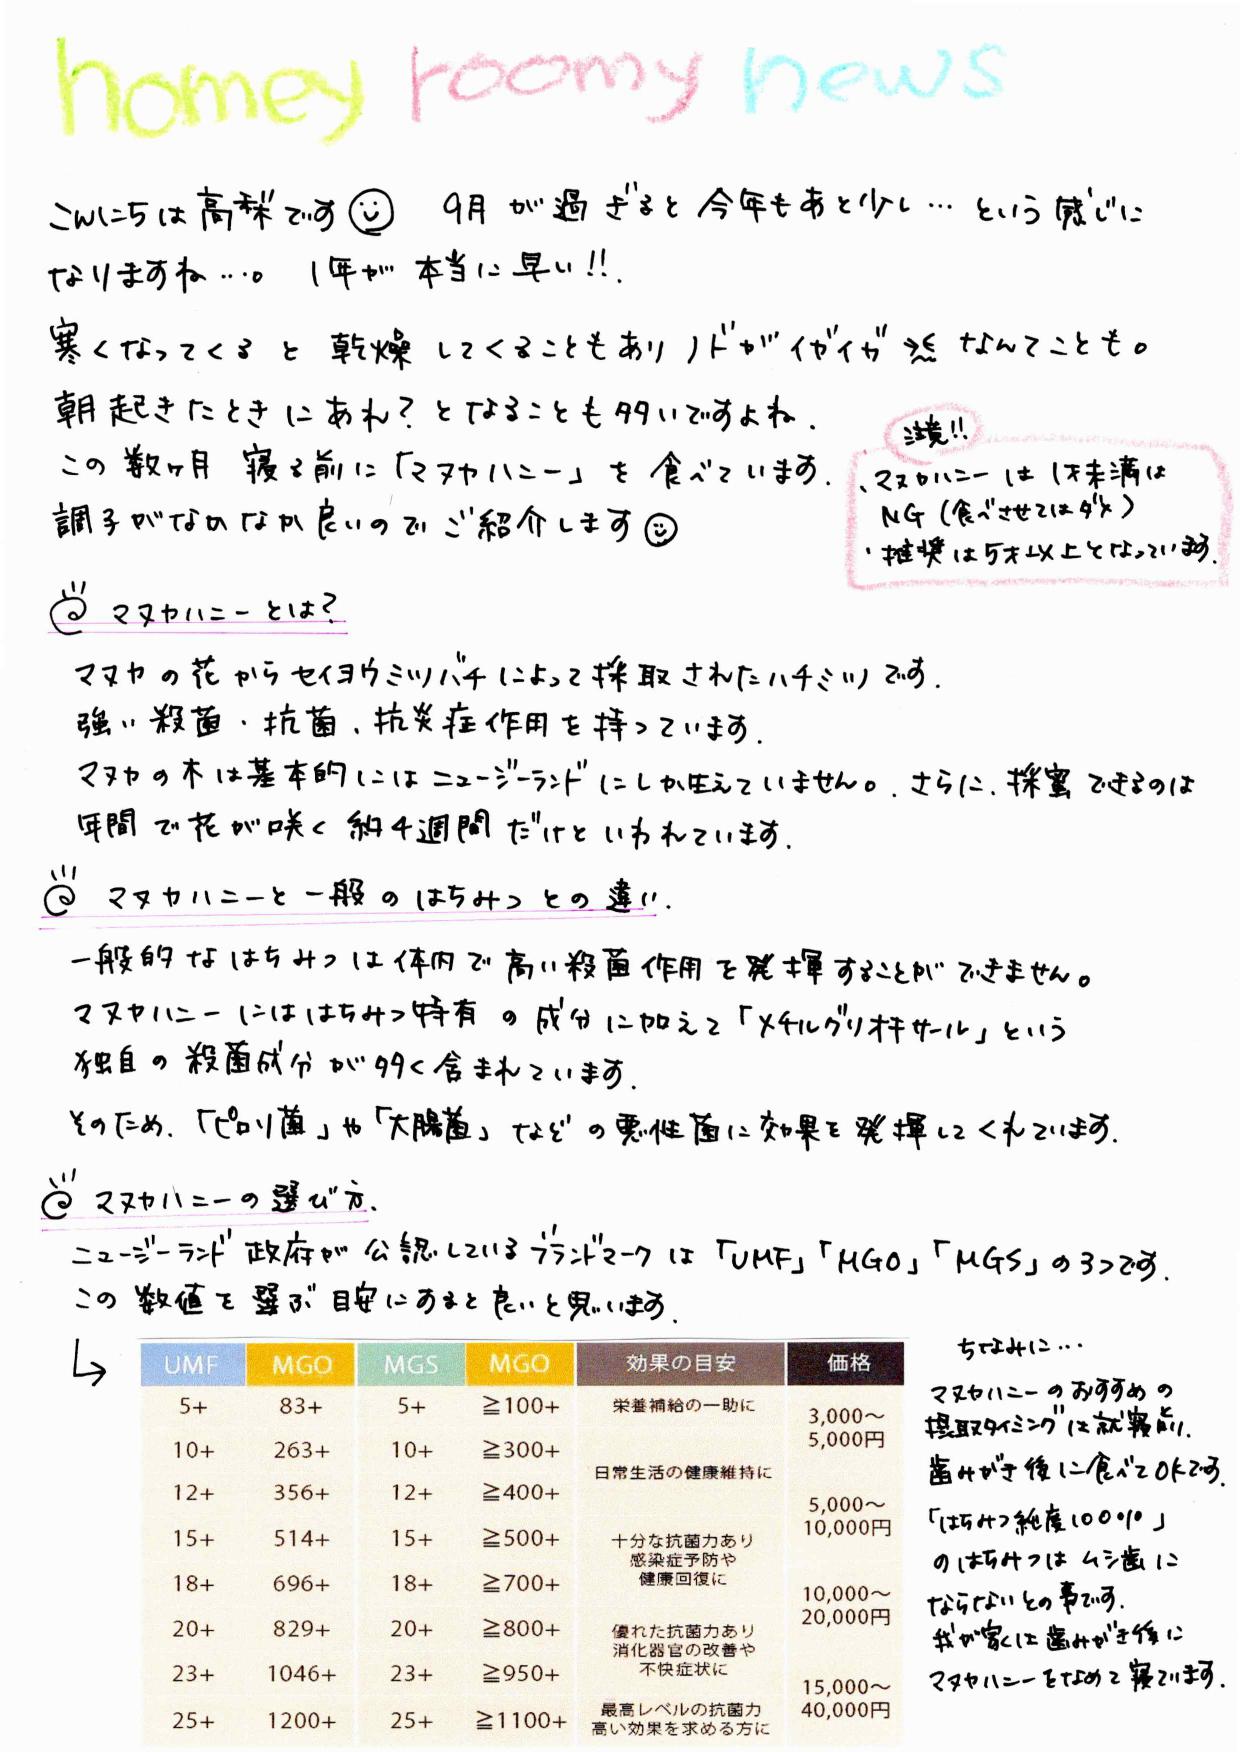 homey roomy news
こんにちは高梨です 9月が過ぎると今年もあと少し…という感じに
なりますね…。 1年が本当に早い!!.
寒くなってくると乾燥してくることもありノドがイガイガなんてことも。
朝起きたときにあれ?となることも多いですよね.
この数ヶ月 寝る前に「マヌカハニー」を食べています.
調子がなかなか良いのでご紹介します
注意!!
・マヌカハニーは1才未満は
NG(食べさせてはダメ)
・推奨は5才以上となっています.
マヌカハニーとは?
マヌカの花からセイヨウミツバチによって採取されたハチミツです.
強い殺菌・抗菌、抗炎症作用を持っています.
マヌカの木は基本的にはニュージーランドにしか生えていません。さらに、採蜜できるのは
年間で花が咲く約4週間だけといわれています.
マヌカハニーと一般のはちみつとの違い.
一般的なはちみつは体内で高い殺菌作用を発揮することができません。
マヌカハニーにははちみつ特有の成分に加えて「メチルグリオキサール」という
独自の殺菌成分が多く含まれています.
そのため、「ピロリ菌」や「大腸菌」などの悪性菌に効果を発揮してくれています.
マヌカハニーの選び方.
ニュージーランド政府が公認しているブランドマークは「UMF」「MGO」「MGS」の3つです.
この数値を選ぶ目安にすると良いと思います.
UMF MGO MGS MGO 効果の目安 価格
5+ 83+ 5+ ≧100+ 栄養補給の一助に
3,000〜
5,000円
10+ 263+ 10+ ≧300+
日常生活の健康維持に
12+ 356+ 12+ ≧400+
5,000〜
10,000円
15+ 514+ 15+ ≧500+ 十分な抗菌力あり
感染症予防や
健康回復に
18+ 696+ 18+ ≧700+
10,000〜
20,000円
20+ 829+ 20+ ≧800+ 優れた抗菌力あり
消化器官の改善や
不快症状に
23+ 1046+ 23+ ≧950+
15,000〜
40,000円
25+ 1200+ 25+ ≧1100+ 最高レベルの抗菌力
高い効果を求める方に
ちなみに…
マヌカハニーのおすすめの
摂取タイミングは就寝前.
歯みがき後に食べてOKです.
「はちみつ純度100%」
のはちみつはムシ歯に
ならないとの事です.
我が家は歯みがき後に
マヌカハニーをなめて寝ています.